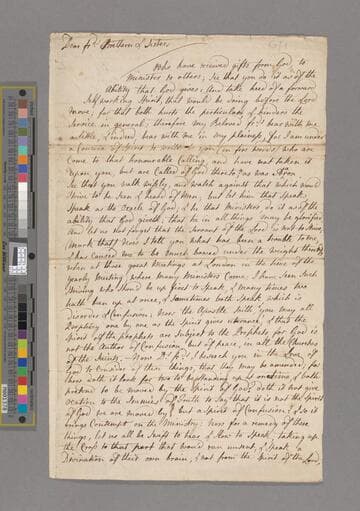 Dear frds Brethren & Sisters
who have received gifts from God to
Minister to others; See that you do it as of the
Ability that God gives; And take heed of a forward
Self working Spirit, that would be doing before the Lord
move; for that both hurts the particular & hinders the
Service in general; therefore My Beloved frds bear with me
a little, & indeed bear with me in my plainness, for I am under
a Concern of Spirit to write to you (in few words) who are
Come to that honourable Calling, and have not taken it
upon you, but are Called of God thereto, as was Aron.
See that you walk wisely, and watch against that which would
strive to be seen & heard of Men; but let him that Speak,
Speak as the Oracle of God, & he that Ministers do it as of the
ability that God giveth; that he in all things may be glorified
And let us not forget that the Servant of the Lord is not to strive,
(mark that) Now I tell you what has been a trouble to me,
& has caused me to be much bowed under the weight thereof
when at those great Meetings at London in the time of the
yearly Meeting, where many Ministers Came, I have seen Such
Striving who should be up first to Speak, & many times two
hath been up at once, & sometimes both Speak which is
disorder & Confusion; Now the Apostle saith, you may all
Prophesy one by one as the Spirit gives utterance, & that the
Spirit of the prophets are subject to the Prophets for God is
not the Author of Confusion but of peace, in all the Churches
of the Saints. Now Dr frds I beseech you in the Love of
God to Consider of these things, that they may be amended, for
those doth it look for two to be Standing up & both
pretend to be moved by the Spirit of God; doth it not give
occation to the Enemies of Truth to Say that it is not the Spirit
of God we are moved by, but a Spirit of Confusion? & so it
brings Contempt on the Ministry: Now for a remedy of these
things, let us all be Swift to hear & Slow to Speak; taking up
the Cross to that part that would run unsent, & Speak a
Divination of their own brain, & not from the Spirit of the Lord,